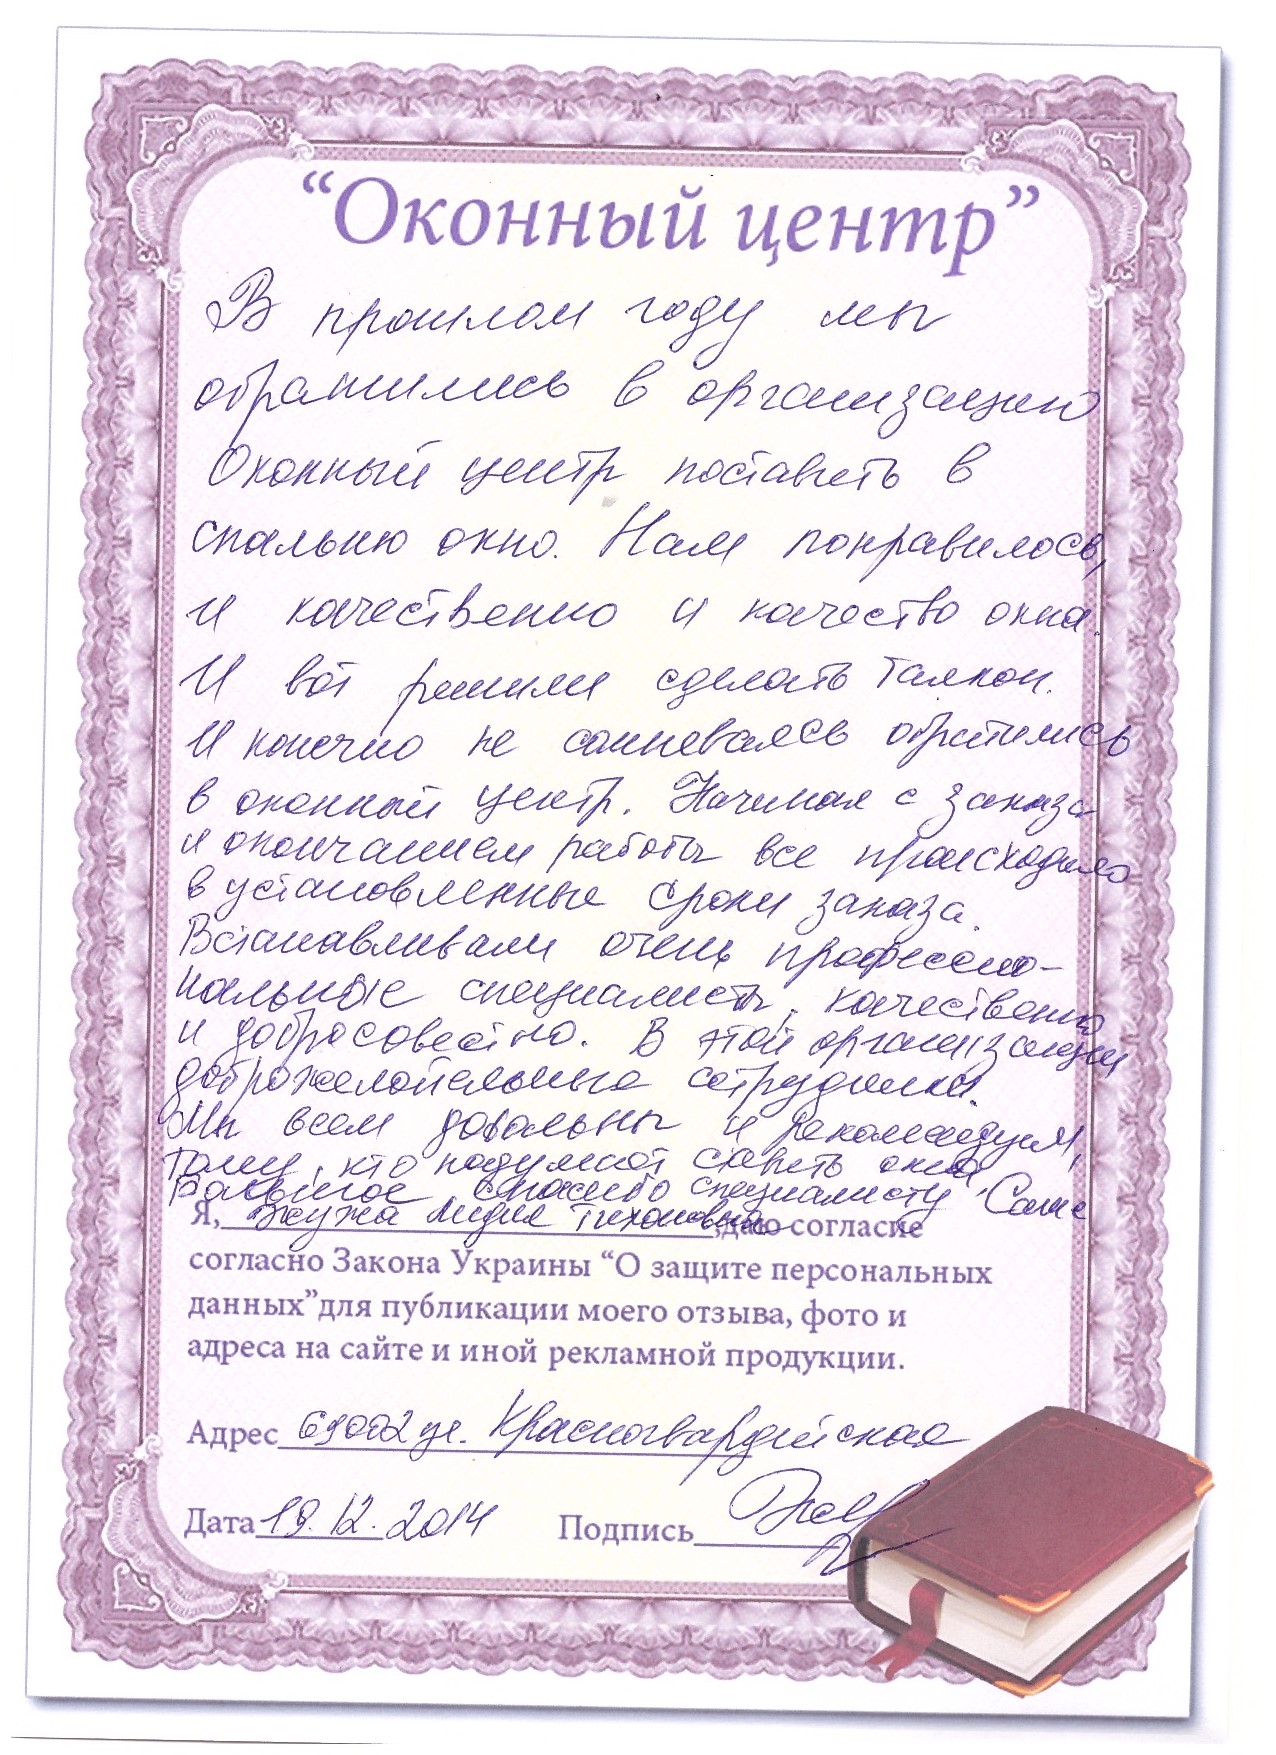 “Оконный центр”
В прошлом году мы
обратились в организацию
Оконный центр поставить в
спальню окно. Нам понравилось,
и качественно и качество окна.
И вот решили сделать балкон.
И конечно не сомневаясь обратились
в оконный центр. Начиная с заказа
и окончанием работы все происходило
в установленные сроки заказа.
Встанавливали очень професссио-
нальные специалисты, качественно
и добросовестно. В этой организации
доброжелательные сотрудники.
Мы всем довольны и рекомендуем,
тому, кто надумает ставить окна
Большое спасибо специалисту Саше
Я, Жужа Лидия Тихоновна, даю согласие
согласно Закона Украины “О защите персональных
данных”для публикации моего отзыва, фото и
адреса на сайте и иной рекламной продукции.
Адрес 69002 ул. Красногвардейская
Дата 19.12.2014 Подпись